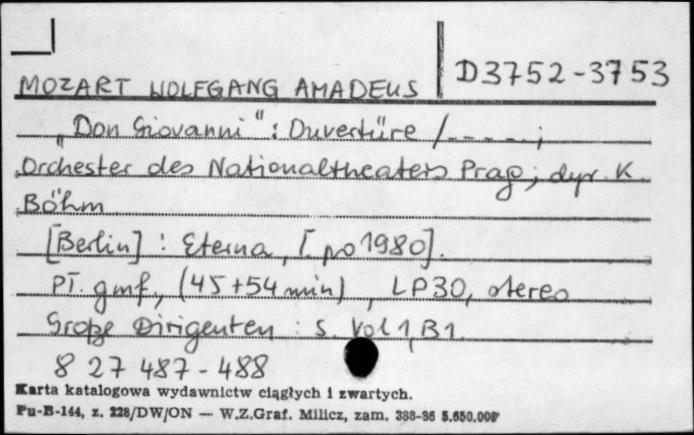 D3752-3753
MOZART WOLFGANG AMADEUS
„Don Giovanni“: Ouvertüre /_ _ _ _ _;
Orchester des Nationaltheaters Prag; dyr. K.
Böhm
[Berlin] : Eterna, [po 1980].
PŁ. gmf., (45+54 min), LP30, stereo
Große Dirigenten : S. Vol 1, B1.
8 27 487 - 488
Karta katalogowa wydawnictw ciągłych i zwartych.
Pu-B-144, z. 228/DW/ON — W.Z.Graf. Milicz, zam. 388-86 5.650.000